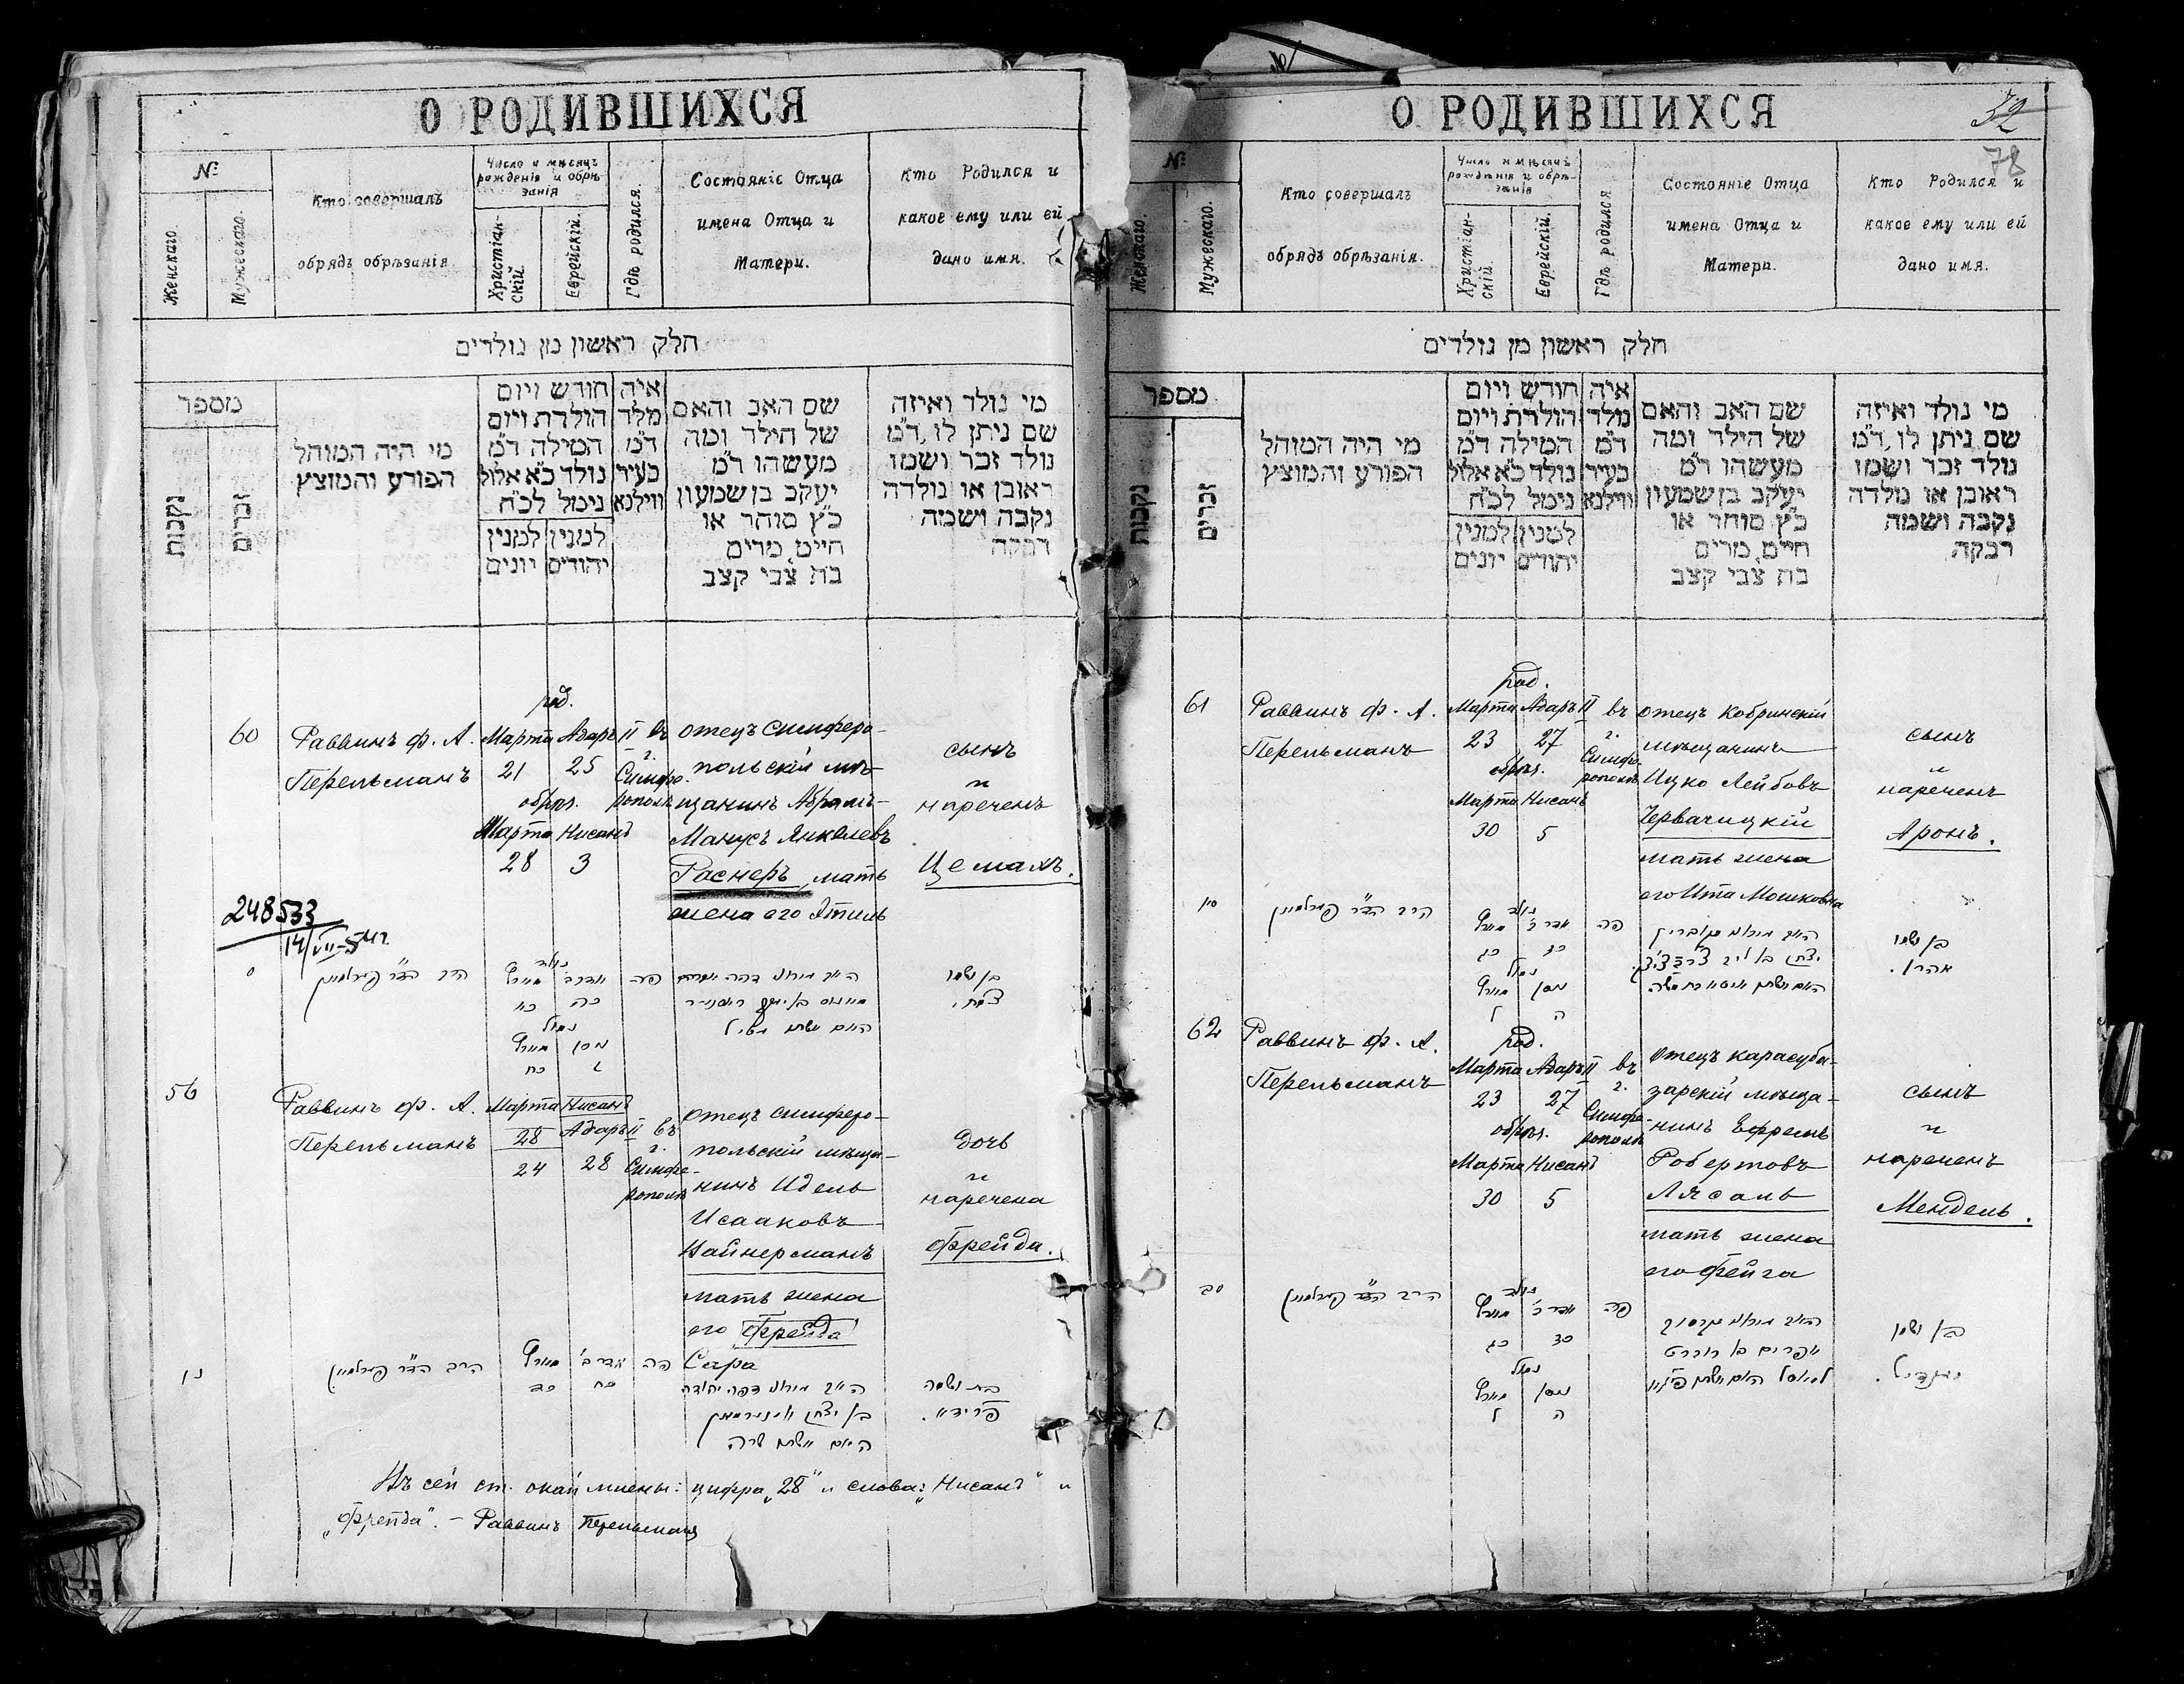 О РОДИВШИХСЯ
№
Женскаго.
Мужескаго.
Кто совершалъ
обрядъ обрѣзанія
Число и мѣсяцъ
рожденія и обрѣ
занія
Христіан-
скій.
Еврейскій.
Гдѣ родился.
Состояніе Отца
имена Отца и
Матери.
Кто Родился и
какое ему или ей
дано имя.
חלק ראשון מן נולדים
מספר
נקבות
זכרים
מי היה המוהל
הפורע והמוצץ
חודש ויום
הולדת ויום
המילה ד״מ
נולד כ״א אלול
נימל לכ״ח
למנין למנין
יהודים יונים
איה
מלד
ד״מ
בעיר
ווילנא
שם האב והאם
של הילד ומה
מעשהו ד״מ
יעקב בן שמעון
כ״ץ סוחר או
חייט, מרים
בת צבי קצב
מי נולד ואיזה
שם ניתן לו, ד״מ
נולד זכר ושמו
ראובן או נולדה
נקבה ושמה
רבקה
60
Раввинъ Ф. А.
Перельманъ
род.
Марта Адаръ II
21 25
обрѣз.
Марта Нисанъ
28 3
въ
г.
Симфе-
рополѣ
отецъ симферо-
польскій мѣ-
щанинъ Абрамъ-
Манусъ Янкелевъ
Раснеръ, мать
жена его Этиль
сынъ
и
нареченъ
Цемахъ.
248533
14/VII-54г.
56
Раввинъ Ф. А.
Перельманъ
Марта Нисанъ
28 Адаръ II
24 28
въ
г.
Симфе-
рополѣ
отецъ симферо-
польскій мѣща-
нинъ Идель
Исааковъ
Вайнерманъ
мать жена
его Фрейда
Сара
дочь
и
наречена
Фрейда.
בת ושמה
פריידא.
Въ сей ст. окаймлены: цифра „28“ и слова: „Нисанъ“ и
„Фрейда“. – Раввинъ Перельманъ
О РОДИВШИХСЯ
32
78
№
Женскаго.
Мужескаго.
Кто совершалъ
обрядъ обрѣзанія.
Число и мѣсяцъ
рожденія и обрѣ-
занія
Христіан-
скій.
Еврейскій.
Гдѣ родился
Состояніе Отца
имена Отца и
Матери.
Кто Родился и
какое ему или ей
дано имя.
חלק ראשון מן נולדים
מספר
נקבות
זכרים
מי היה המוהל
הפורע והמוצץ
חודש ויום
הולדת ויום
המילה ד״מ
נולד כ״א אלול
נימל לכ״ח
למנין למנין
יהודים יונים
איה
מלד
ד״מ
בעיר
ווילנא
שם האב והאם
של הילד ומה
מעשהו ד״מ
יעקב בן שמעון
כ״ץ סוחר או
חייט, מרים
בת צבי קצב
מי נולד ואיזה
שם ניתן לו, ד״מ
נולד זכר ושמו
ראובן או נולדה
נקבה ושמה
רבקה
61
Раввинъ Ф. А.
Перельманъ
род.
Марта Адаръ II
23 27
обрѣз.
Марта Нисанъ
30 5
въ
г.
Симфе-
рополѣ
отецъ Кобринскій
мѣщанинъ
Ицко Лейбовъ
Червачицкій
мать жена
его Ита Мошковна
сынъ
и
нареченъ
Аронъ.
בן ושמו
אהרן.
62
Раввинъ Ф. А.
Перельманъ
род.
Марта Адаръ II
23 27
обрѣз.
Марта Нисанъ
30 5
въ
г.
Симфе-
рополѣ
отецъ карасуба-
зарскій мѣща-
нинъ Ефремъ
Робертовъ
Лясаль
мать жена
его Фейга
сынъ
и
нареченъ
Мендель.
בן ושמו
מענדיל.